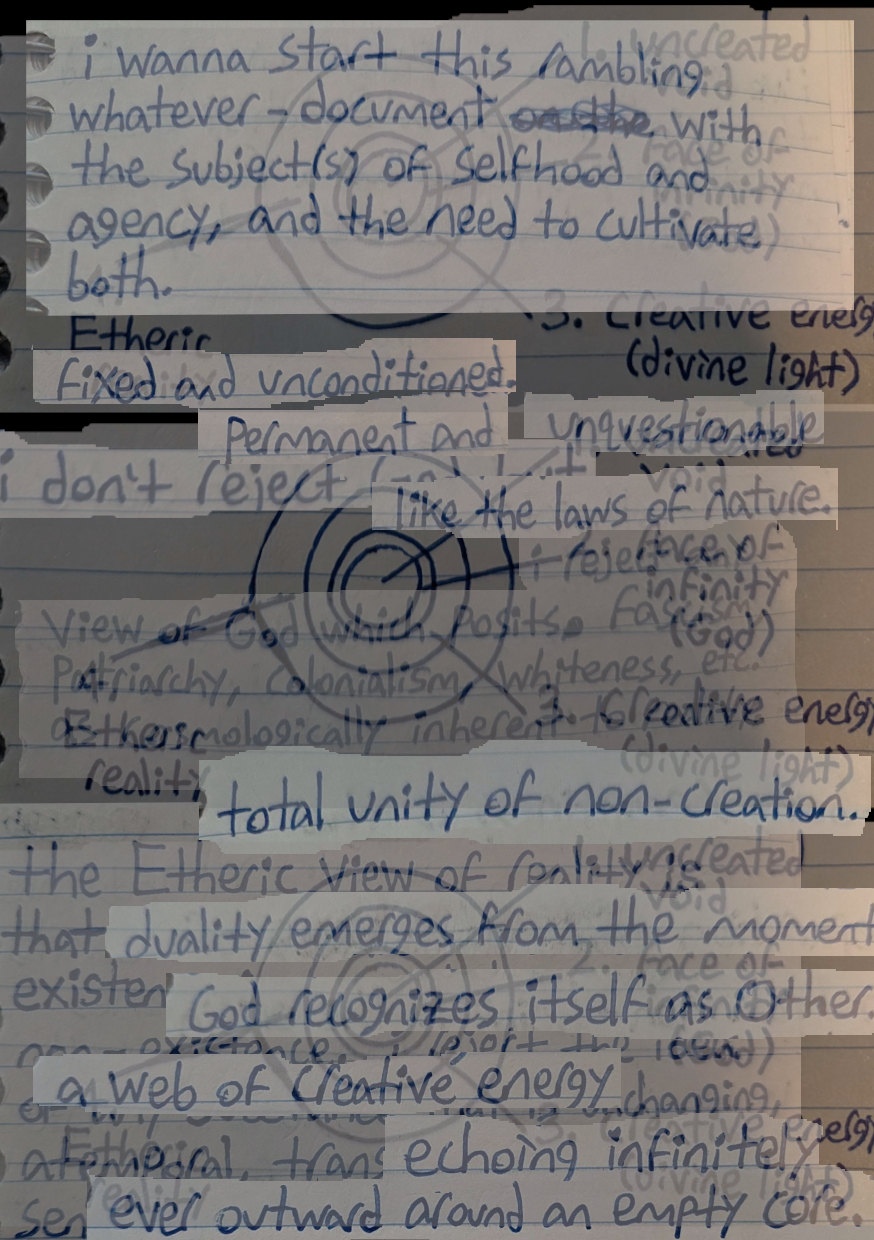 i wanna start this rambling
whatever-document with
the subject(s) of selfhood and
agency, and the need to cultivate
both.
1. uncreated
void
2. Face of
infinity
3. Creative energy
(divine light)
Etheric
fixed and unconditioned.
Permanent and unquestionable
i don't reject
like the laws of nature.
void
i reject
Face of
infinity
(God)
View of God which Posits Fascism
Patriarchy, Colonialism, Whiteness, etc.
inherent
3. Creative energy
(divine light)
Etheric
reality
total unity of non-creation.
the Etheric view of reality is
uncreated
void
that duality emerges from the moment
2. Face of
God recognizes itself as Other.
non-existence. i reject the
a web of creative energy
unchanging,
3. Creative energy
atemporal, echoing infinitely
Etheric
(divine light)
reality
ever outward around an empty core.